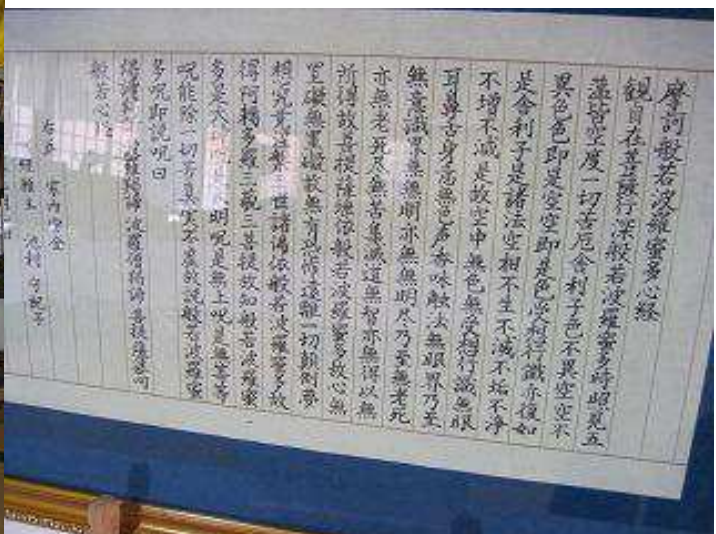 摩訶般若波羅蜜多心経
観自在菩薩行深般若波羅蜜多時照見五
蘊皆空度一切苦厄舎利子色不異空空不
異色色即是空空即是色受想行識亦復如
是舎利子是諸法空相不生不滅不垢不浄
不増不減是故空中無色無受想行識無眼
耳鼻舌身意無色声香味触法無眼界乃至
無意識界無無明亦無無明尽乃至無老死
亦無老死尽無苦集滅道無智亦無得以無
所得故菩提薩埵依般若波羅蜜多故心無
罣礙無罣礙故無有恐怖遠離一切顛倒夢
想究竟涅槃三世諸仏依般若波羅蜜多故
得阿耨多羅三藐三菩提故知般若波羅蜜
多是大神呪是大明呪是無上呪是無等等
呪能除一切苦真実不虚故説般若波羅蜜
多呪即説呪曰
羯諦 波羅羯諦波羅僧羯諦菩提薩婆訶
般若心経
為 家内安全